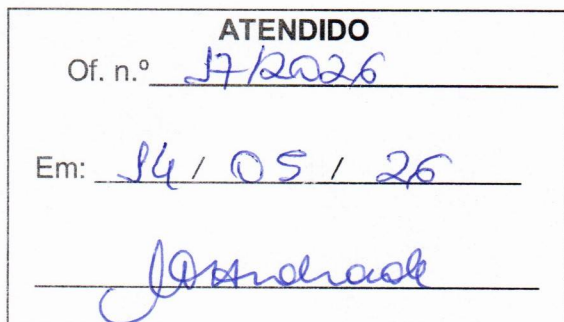 ATENDIDO
Of. n.º 17/2026
Em: 14 / 05 / 26